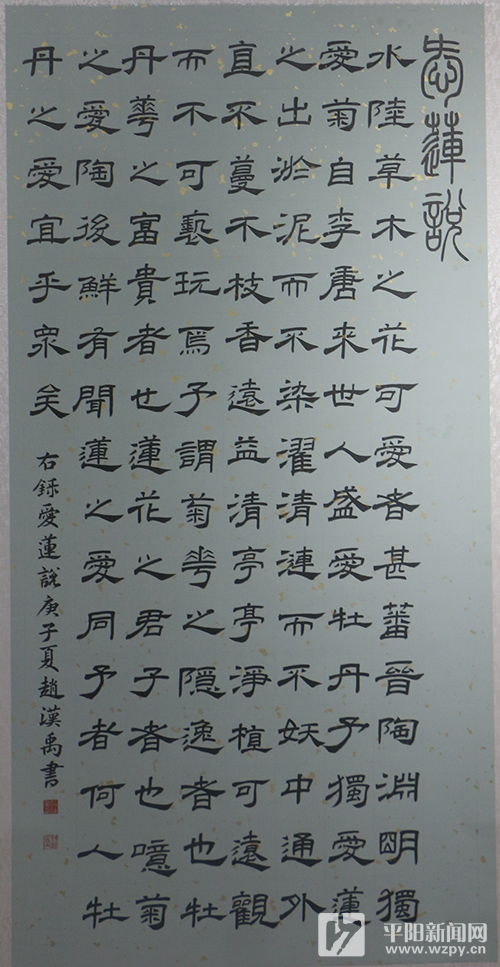 㤅蓮說
水陸草木之花可愛者甚蕃晉陶淵明獨
愛菊自李唐來世人盛愛牡丹予獨愛蓮
之出淤泥而不染濯清漣而不妖中通外
直不蔓不枝香遠益清亭亭淨植可遠觀
而不可褻玩焉予謂菊華之隱逸者也牡
丹華之富貴者也蓮花之君子者也噫菊
之愛陶後鮮有聞蓮之愛同予者何人牡
丹之愛宜乎眾矣
右録愛蓮說庚子夏趙漢禹書
平阳新闻网
www.wzpy.cn